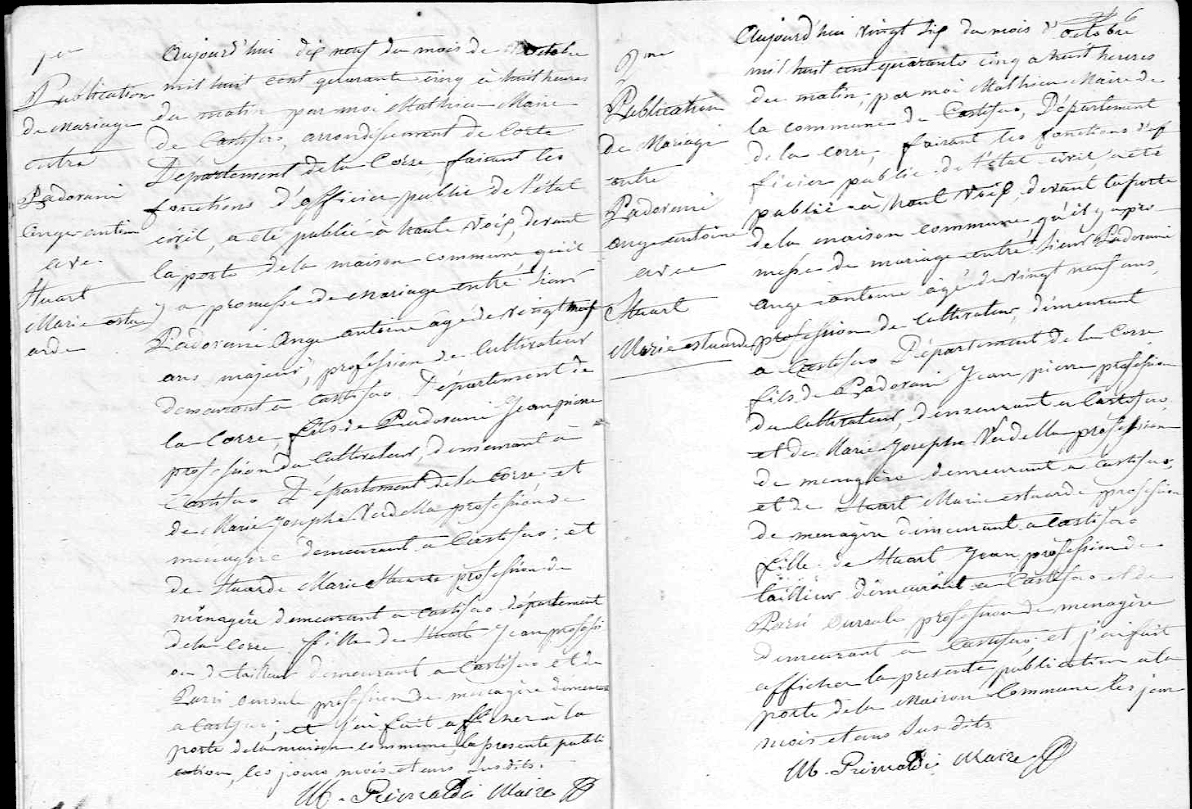 1re
Publication
de Mariage
entre
Padovani
Ange antoine
avec
Stuart
Marie estu
arde
Aujourd'hui dix neuf du mois de octobre
mil huit cent quarante cinq à huit heures
du matin par moi Mathieu Maire
de Castifao, arrondissement de Corte
Département de la Corse, faisant les
fonctions d'officier public de l'état
civil, a été publié à haute voix, devant
la porte de la maison commune, qu'il
y a promesse de mariage entre sieur
Padovani Ange antoine agé de vingt neuf
ans majeur, profession de cultivateur
demeurant a Castifao Département de
la Corse, fils de Padovani Jean pierre
profession du cultivateur, demeurant à
Castifao Département de la Corse et
de Marie Josephe Verdella profession de
menagère demeurant a Castifao; et
de Stuarde Marie Stuarte profession de
ménagère demeurant a Castifao département
de la Corse, fille de Stuart Jean professi
on de tailleur demeurant a Castifao et de
Parsi Oursule profession de menagère demeurant
a Castifao; et j'ai fait afficher à la
porte de la maison commune, la présente publi
cation, les jours mois et ans susdits.
M. Grimaldi Maire
2me
Publication
de Mariage
entre
Padovani
ange antoine
avec
Stuart
Marie estuarde
6
Aujourd'hui vingt six du mois d'octobre
mil huit cent quarante cinq a huit heures
du matin, par moi Mathieu Maire de
la commune de Castifao, Département
de la Corse, faisant les fonctions d'of
ficier public de l'état civil a été
publié à haut voix, devant la porte
de la maison commune qu'il y a pro
messe de mariage entre sieur Padovani
Ange antoine agé de vingt neuf ans,
profession de cultivateur, demeurant
a Castifao Département de la Corse
fils de Padovani Jean pierre profession
du cultivateur, demeurant a Castifao,
et de Marie Josephe Verdella profession
de menagère demeurant a Castifao,
et de Stuart Marie estuarde profession
de menagère demeurant a Castifao
fille de Stuart Jean profession de
tailleur demeurant a Castifao et de
Parsi Oursule profession de menagère
demeurant a Castifao et j'ai fait
afficher la presente publication a la
porte de la Maison Commune les jour
mois et ans susdits
M. Grimaldi Maire